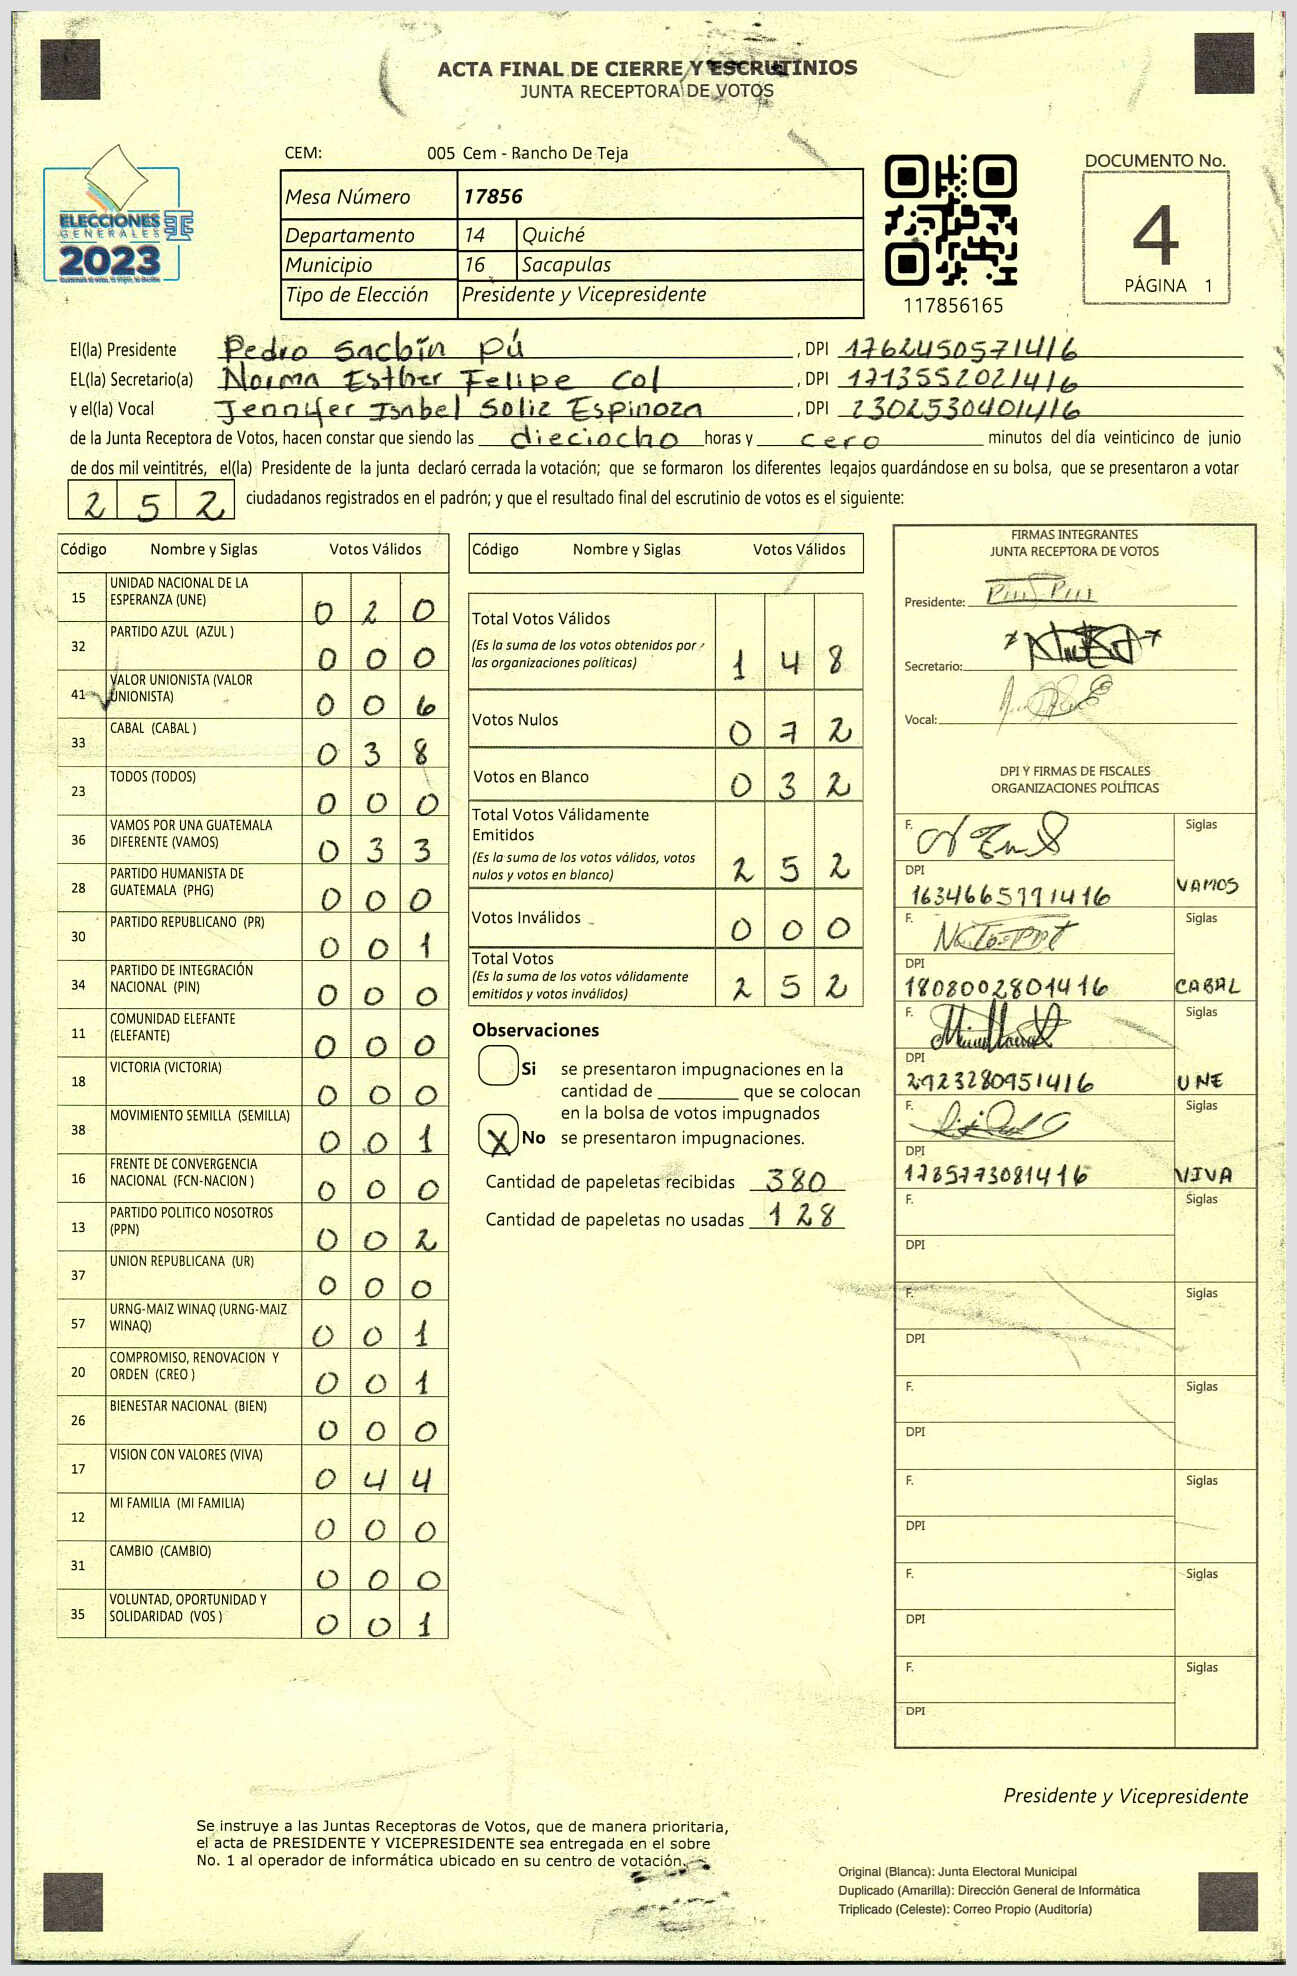 ACTA FINAL DE CIERRE Y ESCRUTINIOS
JUNTA RECEPTORA DE VOTOS
ELECCIONES
GENERALES
2023
CEM: 005 Cem - Rancho De Teja
Mesa Número 17856
Departamento 14 Quiché
Municipio 16 Sacapulas
Tipo de Elección Presidente y Vicepresidente
117856165
DOCUMENTO No.
4
PÁGINA 1
El(la) Presidente Pedro Sacbín Pú, DPI 1762450571416
EL(la) Secretario(a) Norma Esther Felipe Col, DPI 1713552021416
y el(la) Vocal Jennifer Isabel Soliz Espinoza, DPI 2302530401416
de la Junta Receptora de Votos, hacen constar que siendo las dieciocho horas y cero minutos del día veinticinco de junio
de dos mil veintitrés, el(la) Presidente de la junta declaró cerrada la votación; que se formaron los diferentes legajos guardándose en su bolsa, que se presentaron a votar
252 ciudadanos registrados en el padrón; y que el resultado final del escrutinio de votos es el siguiente:
Código Nombre y Siglas Votos Válidos
15 UNIDAD NACIONAL DE LA
ESPERANZA (UNE) 0 2 0
32 PARTIDO AZUL (AZUL ) 0 0 0
41 VALOR UNIONISTA (VALOR
UNIONISTA) 0 0 6
33 CABAL (CABAL ) 0 3 8
23 TODOS (TODOS) 0 0 0
36 VAMOS POR UNA GUATEMALA
DIFERENTE (VAMOS) 0 3 3
28 PARTIDO HUMANISTA DE
GUATEMALA (PHG) 0 0 0
30 PARTIDO REPUBLICANO (PR) 0 0 1
34 PARTIDO DE INTEGRACIÓN
NACIONAL (PIN) 0 0 0
11 COMUNIDAD ELEFANTE
(ELEFANTE) 0 0 0
18 VICTORIA (VICTORIA) 0 0 0
38 MOVIMIENTO SEMILLA (SEMILLA) 0 0 1
16 FRENTE DE CONVERGENCIA
NACIONAL (FCN-NACION ) 0 0 0
13 PARTIDO POLITICO NOSOTROS
(PPN) 0 0 2
37 UNION REPUBLICANA (UR) 0 0 0
57 URNG-MAIZ WINAQ (URNG-MAIZ
WINAQ) 0 0 1
20 COMPROMISO, RENOVACION Y
ORDEN (CREO ) 0 0 1
26 BIENESTAR NACIONAL (BIEN) 0 0 0
17 VISION CON VALORES (VIVA) 0 4 4
12 MI FAMILIA (MI FAMILIA) 0 0 0
31 CAMBIO (CAMBIO) 0 0 0
35 VOLUNTAD, OPORTUNIDAD Y
SOLIDARIDAD (VOS ) 0 0 1
Código Nombre y Siglas Votos Válidos
Total Votos Válidos
(Es la suma de los votos obtenidos por
las organizaciones políticas) 1 4 8
Votos Nulos 0 7 2
Votos en Blanco 0 3 2
Total Votos Válidamente
Emitidos
(Es la suma de los votos válidos, votos
nulos y votos en blanco) 2 5 2
Votos Inválidos 0 0 0
Total Votos
(Es la suma de los votos válidamente
emitidos y votos inválidos) 2 5 2
Observaciones
Si se presentaron impugnaciones en la
cantidad de ________ que se colocan
en la bolsa de votos impugnados
X No se presentaron impugnaciones.
Cantidad de papeletas recibidas 380
Cantidad de papeletas no usadas 128
FIRMAS INTEGRANTES
JUNTA RECEPTORA DE VOTOS
Presidente:
Secretario:
Vocal:
DPI Y FIRMAS DE FISCALES
ORGANIZACIONES POLÍTICAS
F. Siglas
DPI
1634665791416 VAMOS
F. Siglas
DPI
1808002801416 CABAL
F. Siglas
DPI
2923280951416 UNE
F. Siglas
DPI
1785773081416 VIVA
F. Siglas
DPI
F. Siglas
DPI
F. Siglas
DPI
F. Siglas
DPI
F. Siglas
DPI
F. Siglas
DPI
Presidente y Vicepresidente
Se instruye a las Juntas Receptoras de Votos, que de manera prioritaria,
el acta de PRESIDENTE Y VICEPRESIDENTE sea entregada en el sobre
No. 1 al operador de informática ubicado en su centro de votación.
Original (Blanca): Junta Electoral Municipal
Duplicado (Amarilla): Dirección General de Informática
Triplicado (Celeste): Correo Propio (Auditoría)